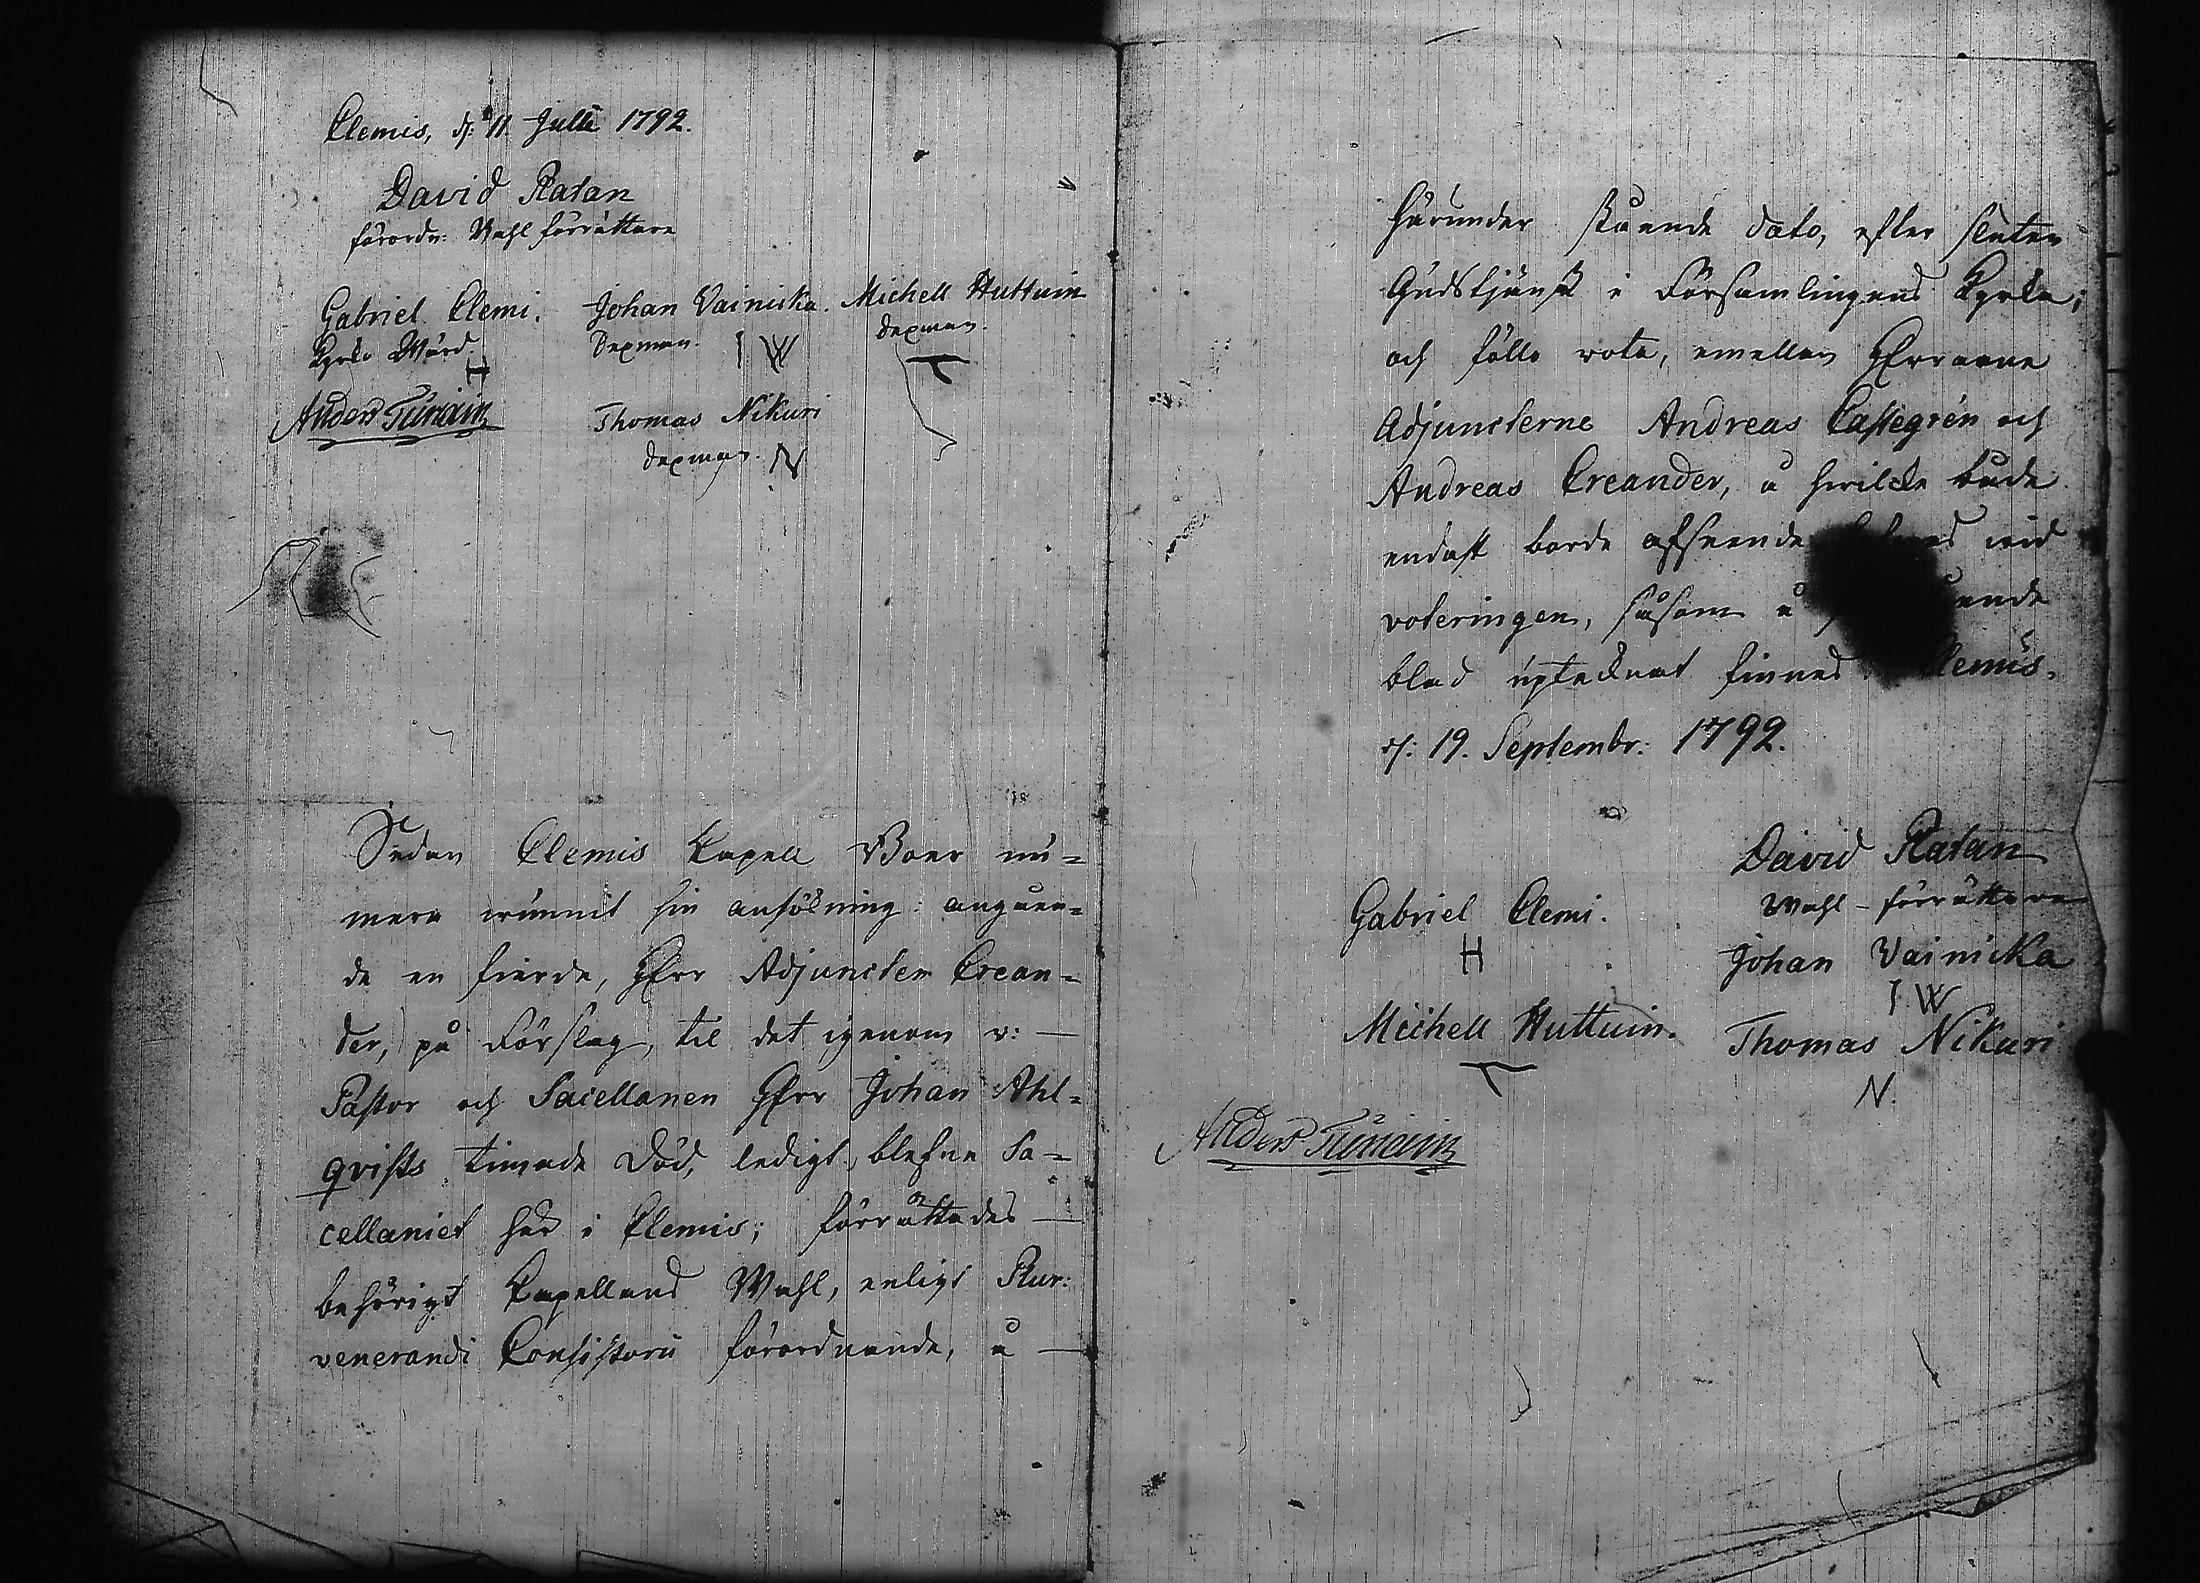 Clemis, d: 11 Julii 1792.
David Ratan
förordn: Wahl förrättare
Gabriel Clemi. Johan Vainicka. Michell Huttuin
Kyrko Wärd. Sexman. Sexman.
H I W T
Anders Turain Thomas Nikuri
Sexman. N
Sedan Clemis Kapell Boer nu=
mera wunnit sin ansökning angåen=
de en fierde, Herr Adjuncten Crean=
der, på Förslag, til det igenom v: —
Pastor och Sacellanen Herr Johan Ahl=
qvists timade Död, ledigt blefne Sa=
cellaniet här i Clemis; förrättades —
behörigt Capellans Wahl, enligt Rev:
venerandi Consistorii förordnande, å —
härunder stående dato, efter sluten
Gudstjänst i Församlingens Kyrka;
och fölle vota, emellan Herrarne
Adjuncterne Andreas Castegrén och
Andreas Creander, å hvilcka båda
endast borde afseende wid
voteringen, såsom å
blad uptecknat finnes Clemis.
d: 19. Septembr: 1792.
David Ratan
Gabriel Clemi. Wahl-förrättare
H Johan Vainicka
I W
Michell Huttuin. Thomas Nikuri
T N.
Anders Turain